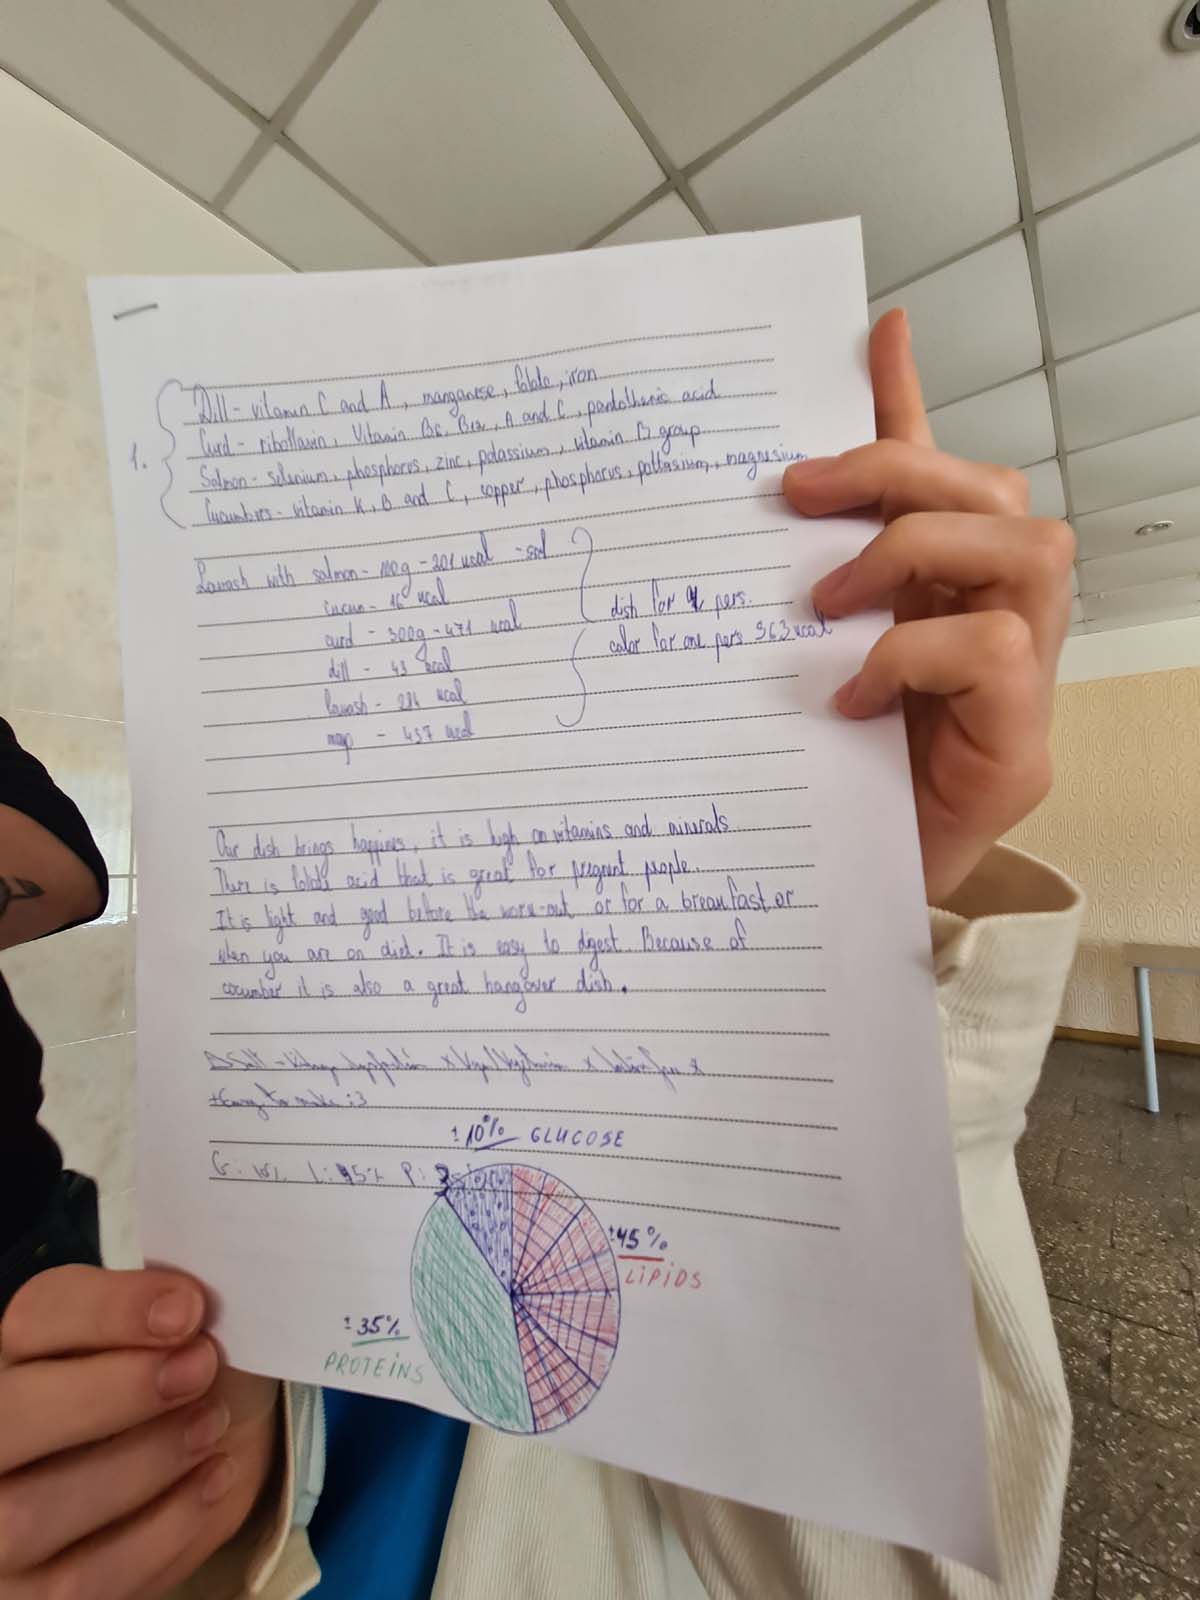 1.
Dill - vitamin C and A, manganese, folate, iron
Curd - riboflavin, Vitamin B6, B12, A and C, pantothenic acid
Salmon - selenium, phosphorus, zinc, potassium, vitamin B group
Cucumbres - vitamin K, B and C, copper, phosphorus, pottasium, magnesium
Lavash with salmon - 100g - 201 kcal
cucum - 16 kcal
curd - 300g - 471 kcal
dill - 43 kcal
lavash - 284 kcal
mayo - 437 kcal
dish for 4 pers.
color for one pers 363 kcal
Our dish brings happines, it is high on vitamins and minerals
There is folate acid that is great for pregnent people.
It is light and good before the work-out or for a breakfast or
when you are on diet. It is easy to digest. Because of
cocumber it is also a great hangover dish.
+ Easy to make :3
± 10% GLUCOSE
G: 10% L: 45% P:
± 45%
LIPIDS
± 35%
PROTEINS